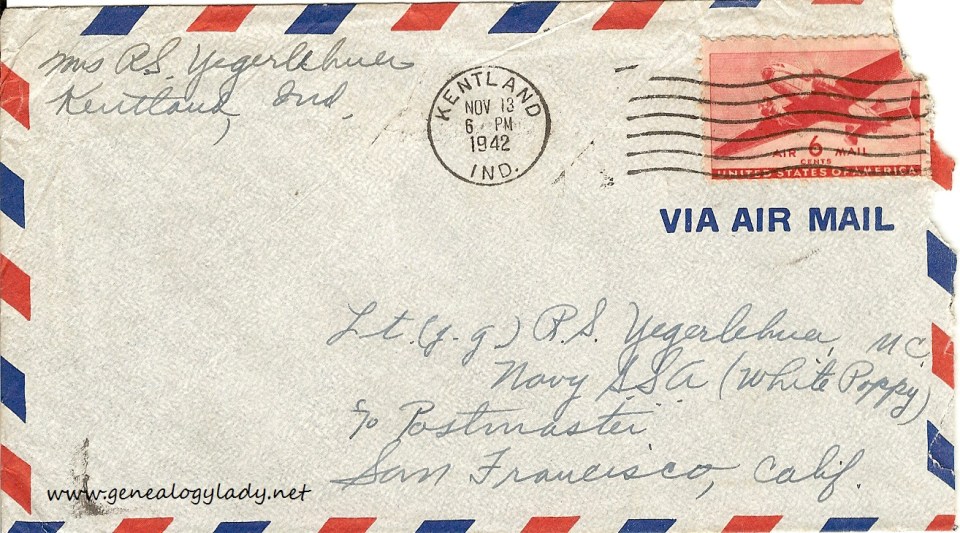 Mrs R.S. Yegerlehner
Kentland, Ind.
KENTLAND
NOV 13
6 PM
1942
IND.
AIR 6 MAIL
CENTS
UNITED STATES OF AMERICA
VIA AIR MAIL
Lt. (j.g) R.S. Yegerlehner, MC,
Navy SSA (White Poppy)
c/o Postmaster
San Francisco, Calif.
www.genealogylady.net